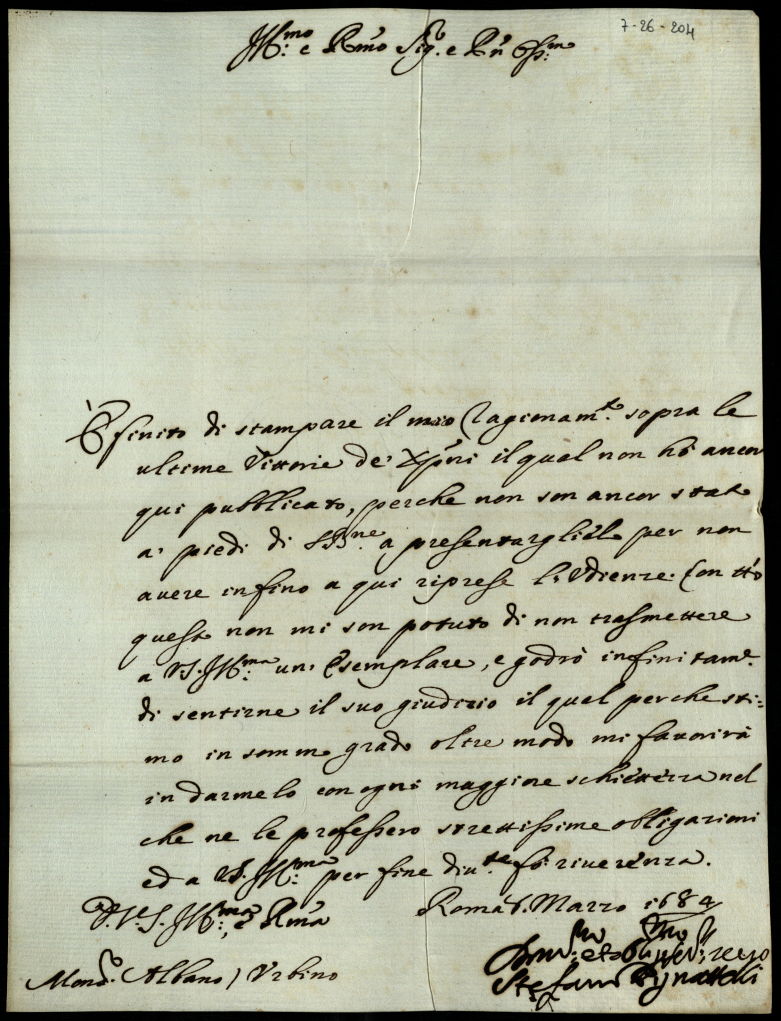 7-26-204
Ill:mo e R.mo Sig.r e P.rn Oss:mo
È finito di stampare il mio Ragionam.to sopra le
ultime Vittorie de' Xp̃ni il qual non hò ancor
qui pubblicato, perche non son ancor stato
a' piedi di S.B.ne a presentarglielo per non
avere infino a qui riprese l'Udienze. Con tt'o
questo non mi son potuto di non trasmettere
a V.S. Ill:ma un' Esemplare, e godrò infinitam.e
di sentirne il suo giudizio il qual perche sti-
mo in sommo grado oltre modo mi favorirà
in darmelo con ogni maggiore schiettezza nel
che ne le professerò strettissime obligazioni
ed a V.S. Ill:ma per fine div.te fò riverenza.
D. V.S. Ill:ma, e R.ma Roma Marzo 1684
Stefano Pignattelli
Mons.r Albano / Urbino